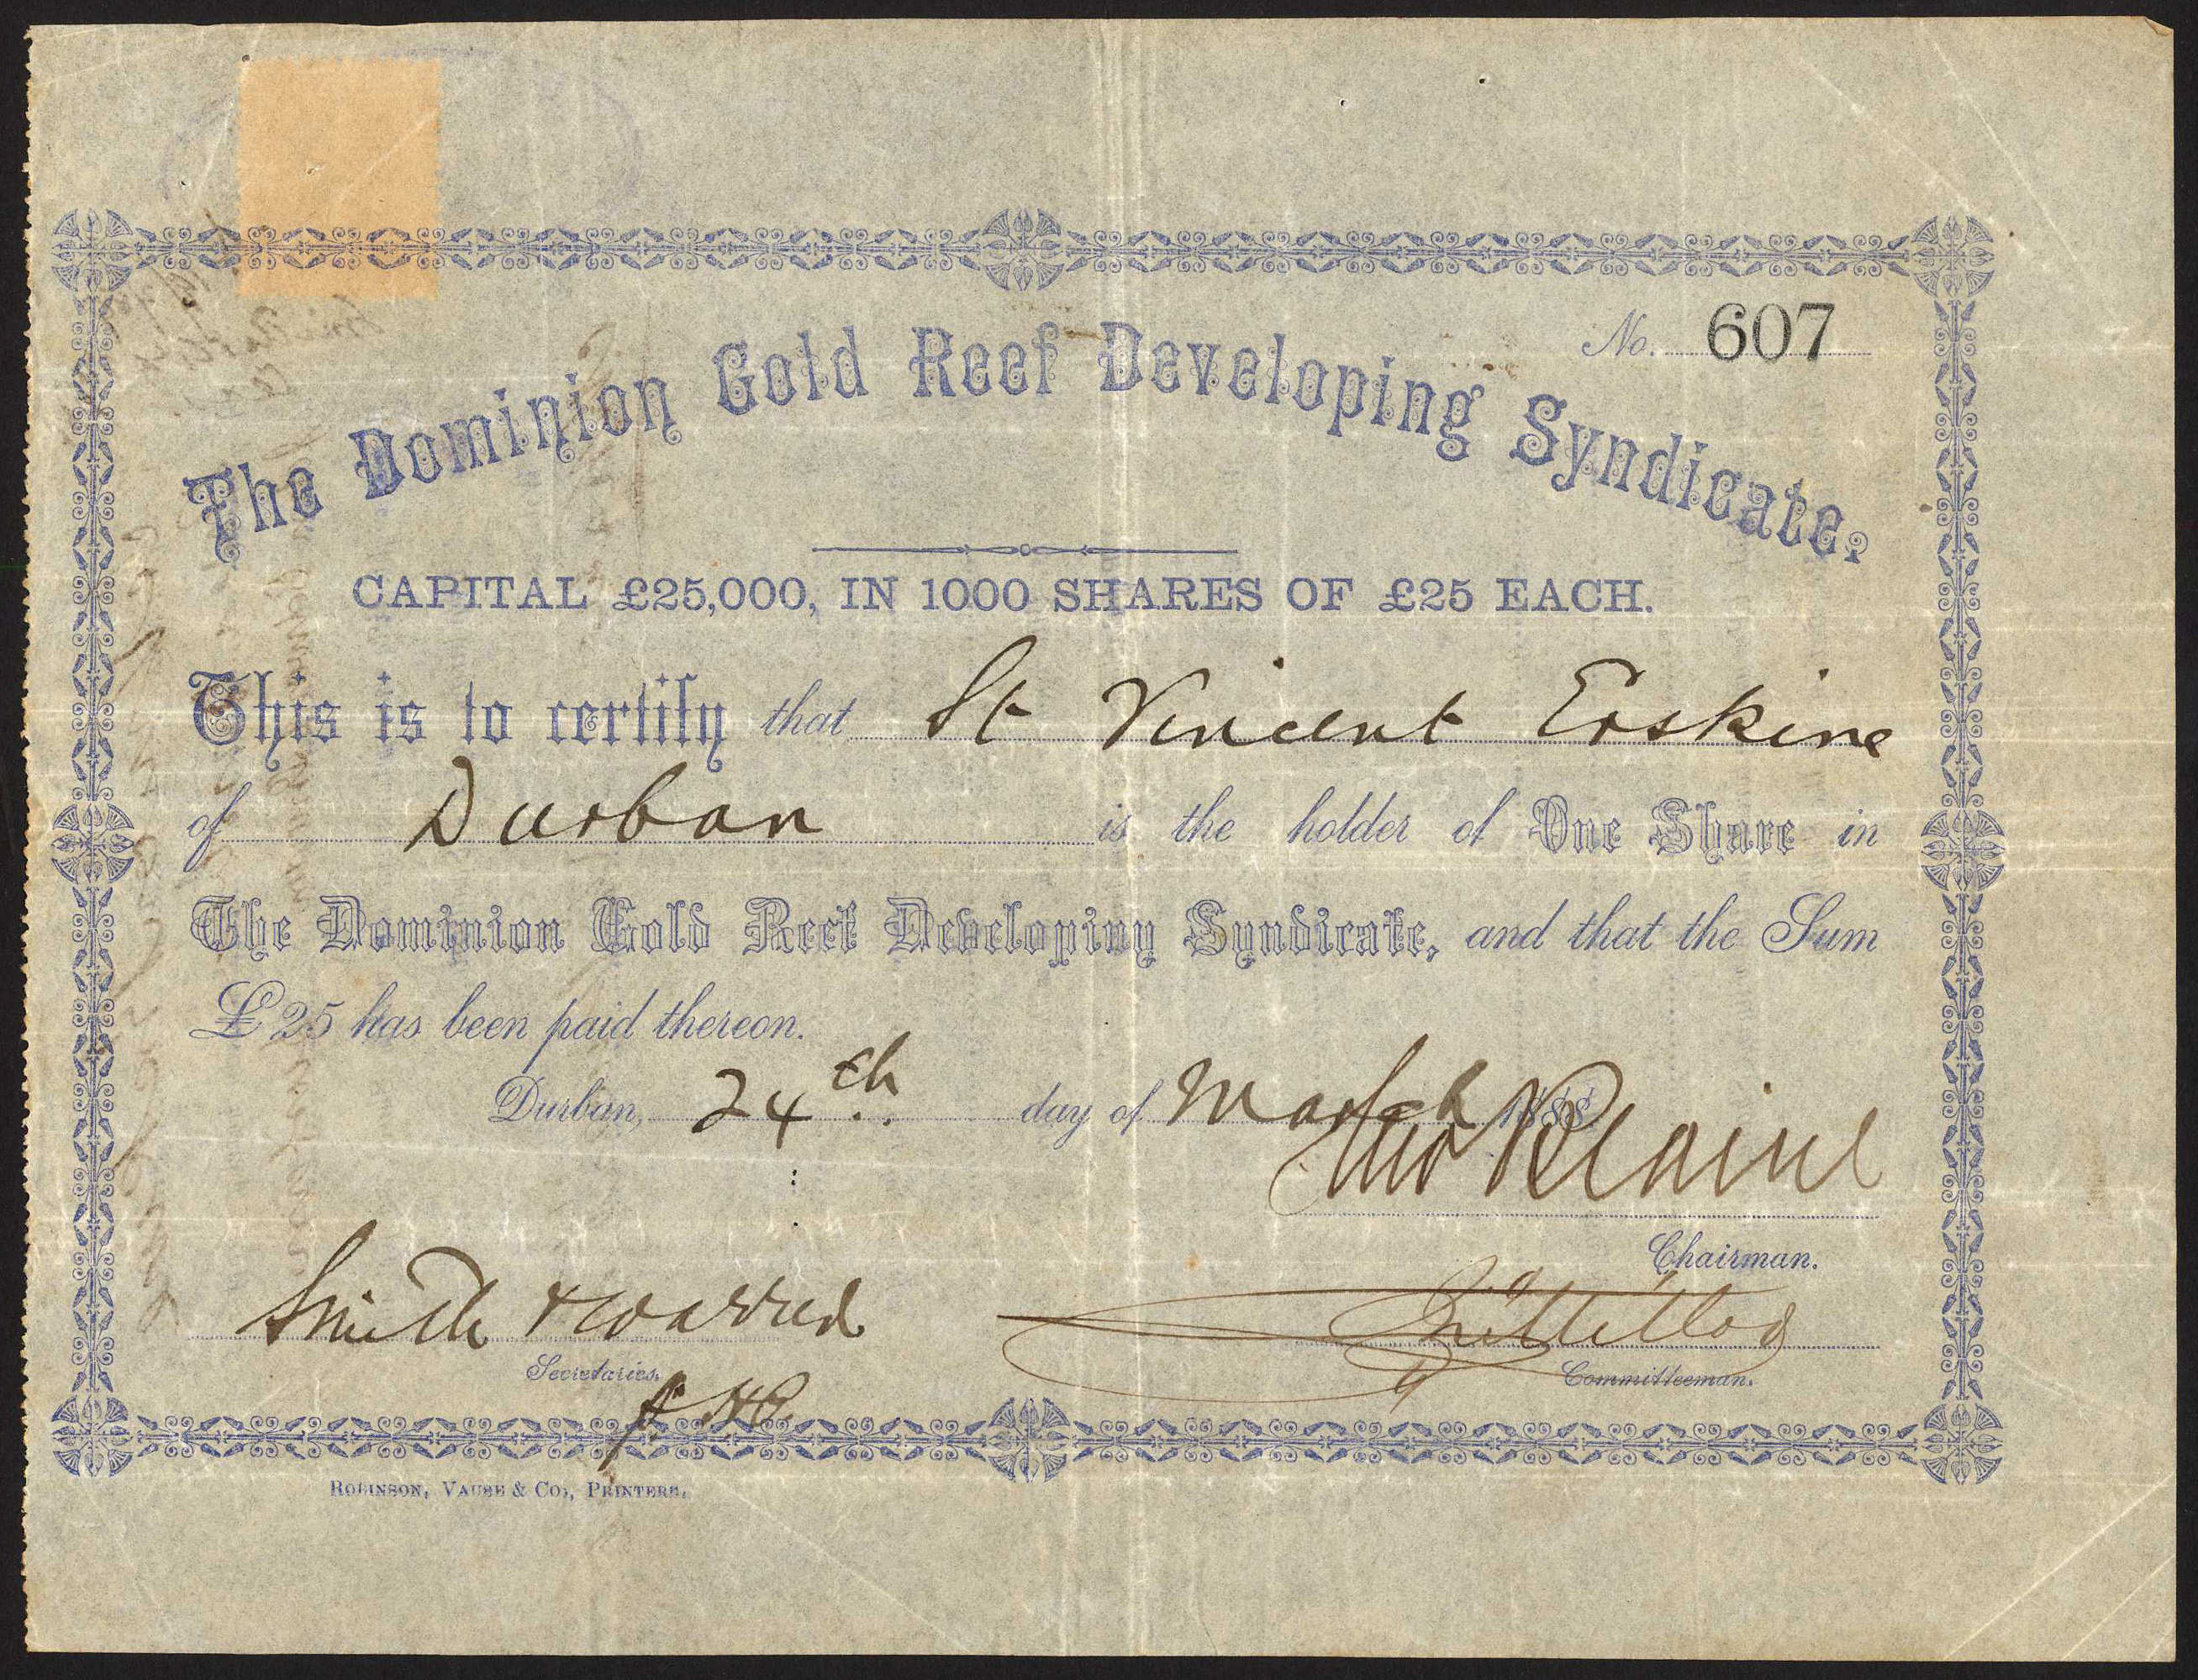 No. 607
The Dominion Gold Reef Developing Syndicate,
CAPITAL £25,000, IN 1000 SHARES OF £25 EACH.
This is to certify that St Vincent Erskine
of Durban is the holder of One Share in
The Dominion Gold Reef Developing Syndicate, and that the Sum
£25 has been paid thereon.
Durban, 24th day of March 1888
Chairman.
Smith &
Secretaries.
Committeeman.
ROBINSON, VAUSE & CO., PRINTERS.